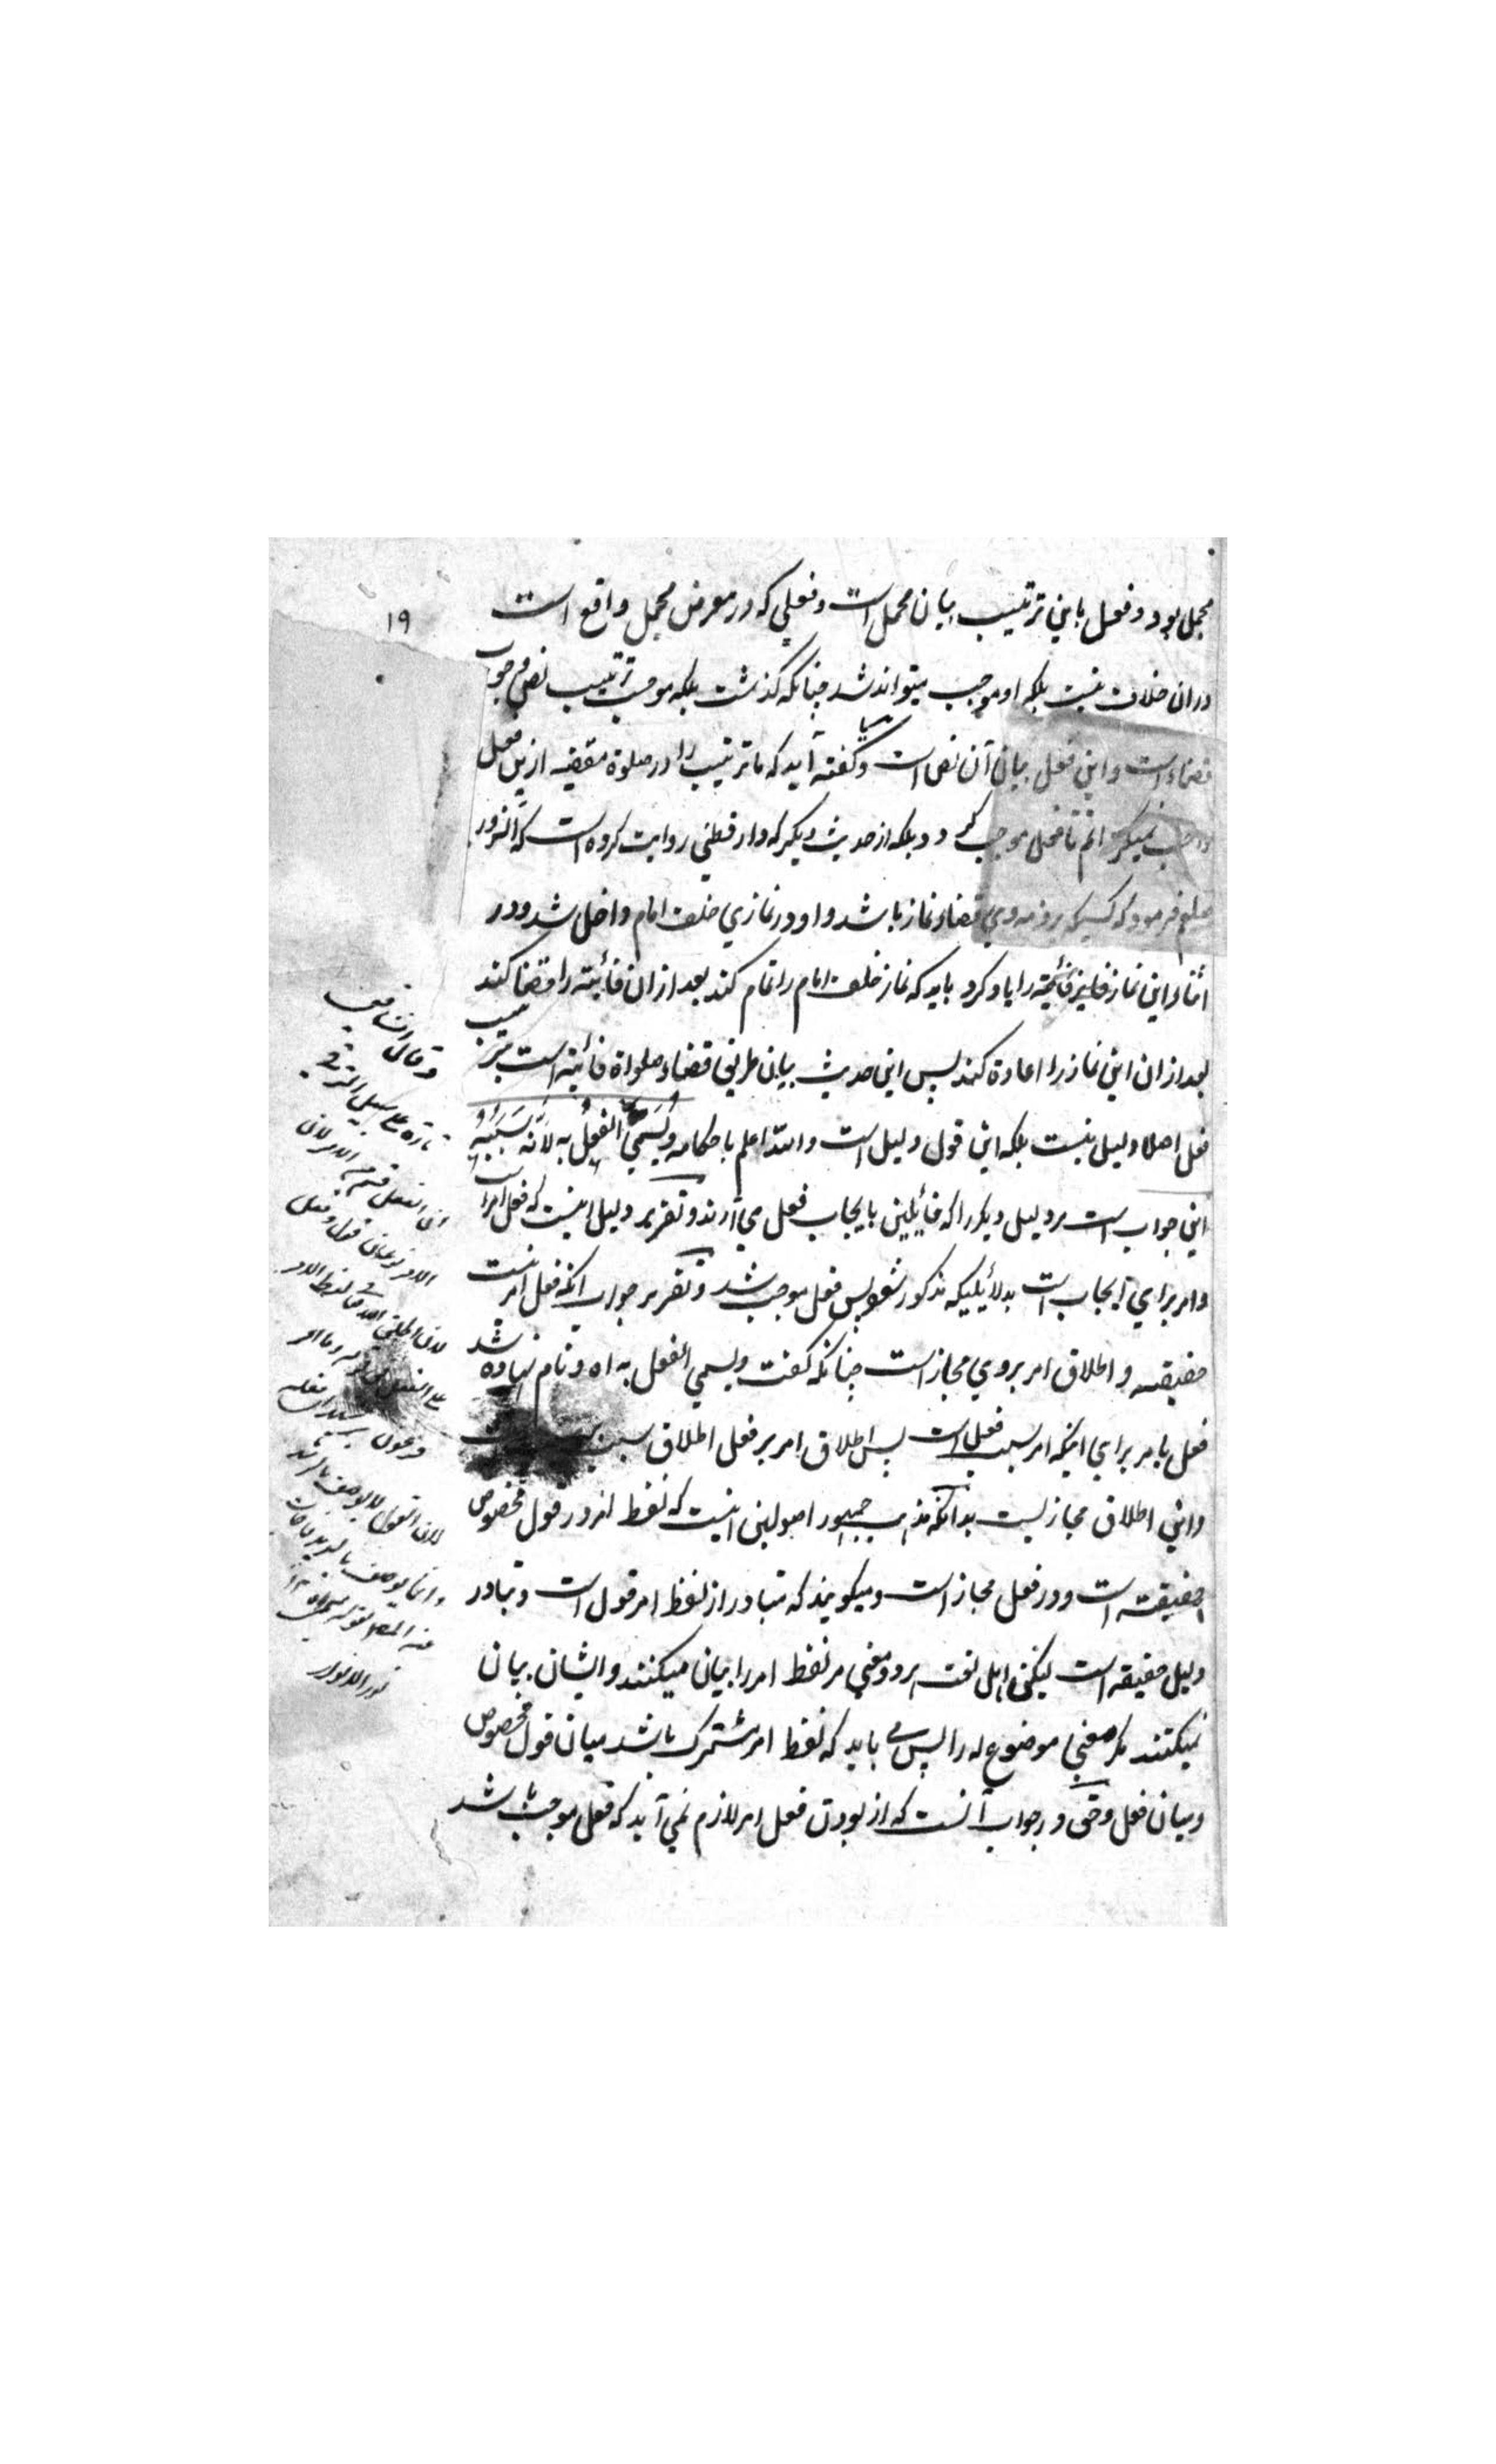 ۱۹
مجمل بود و فعل باین ترتیب بیان مجمل است و فعلی که در معرض مجمل واقع است
دران خلاف نیست بلکه او موجب میتواند شد چنانکه گذشت بلکه موجب ترتیب نص وجوب
قضاء است و این فعل بیان آن نص است و گفته آید که ما ترتیب را در صلوة مقضیه ازین فعل
واجب نمیکردانم تا فعل موجب کردد بلکه از حدیث دیکر که دارقطنی روایت کرده است که آنسرور
صلعم فرمود که کسیکه بر ذمه وی قضاء نماز باشد و او در نمازی خلف امام داخل شد و در
اثناء این نماز فائتة را یاد کرد باید که نماز خلف امام را تمام کند بعد ازان فائتة را قضا کند
بعد ازان این نماز را اعادة کند پس این حدیث بیان طریق قضاء صلواة فائته است
فعل اصلا دلیل نیست بلکه این قول دلیل است والله اعلم باحکامه ویسمی الفعل به لانه سببه
این جواب است مر دلیل دیکر را که قائلین بایجاب فعل می آرند و تقریر دلیل اینست که فعل امر است
وامر برای ایجاب است بدلائلیکه مذکور شد پس فعل موجب شد و تقریر جواب انکه فعل امر نیست
حقیقة و اطلاق امر بروی مجاز است چنانکه کفت ویسمی الفعل به اه و نام نهاده شد
فعل بامر برای اینکه امر سبب فعل است پس اطلاق امر بر فعل اطلاق سبب
واین اطلاق مجازیست بدانکه مذهب جمهور اصولین اینست که لفظ امر در قول مخصوص
حقیقة است و در فعل مجاز است و میکویند که متبادر از لفظ امر قول است و تبادر
دلیل حقیقة است لیکن اهل لغت هر دو معنی مر لفظ امر را بیان میکنند و ایشان بیان
نمیکنند مکر معنی موضوع له را پس می باید که لفظ امر مشترک باشد میان قول مخصوص
ومیان فعل وحق در جواب آنست که از بودن فعل امر لازم نمی آید که فعل موجب باشد
وقال الشافعی
تارة علی سبیل الترقی
ان الفعل قسم من الامر لان
الامر نوعان قول وفعل
لانه اطلق الله تعالی لفظ الامر
علی الفعل فی قوله وما امر
فرعون برشید ای فعله
لان القول لا یوصف بالرشد
وانما یوصف بالسدید فاجاب
عنه المصنف بقوله
نور الانوار